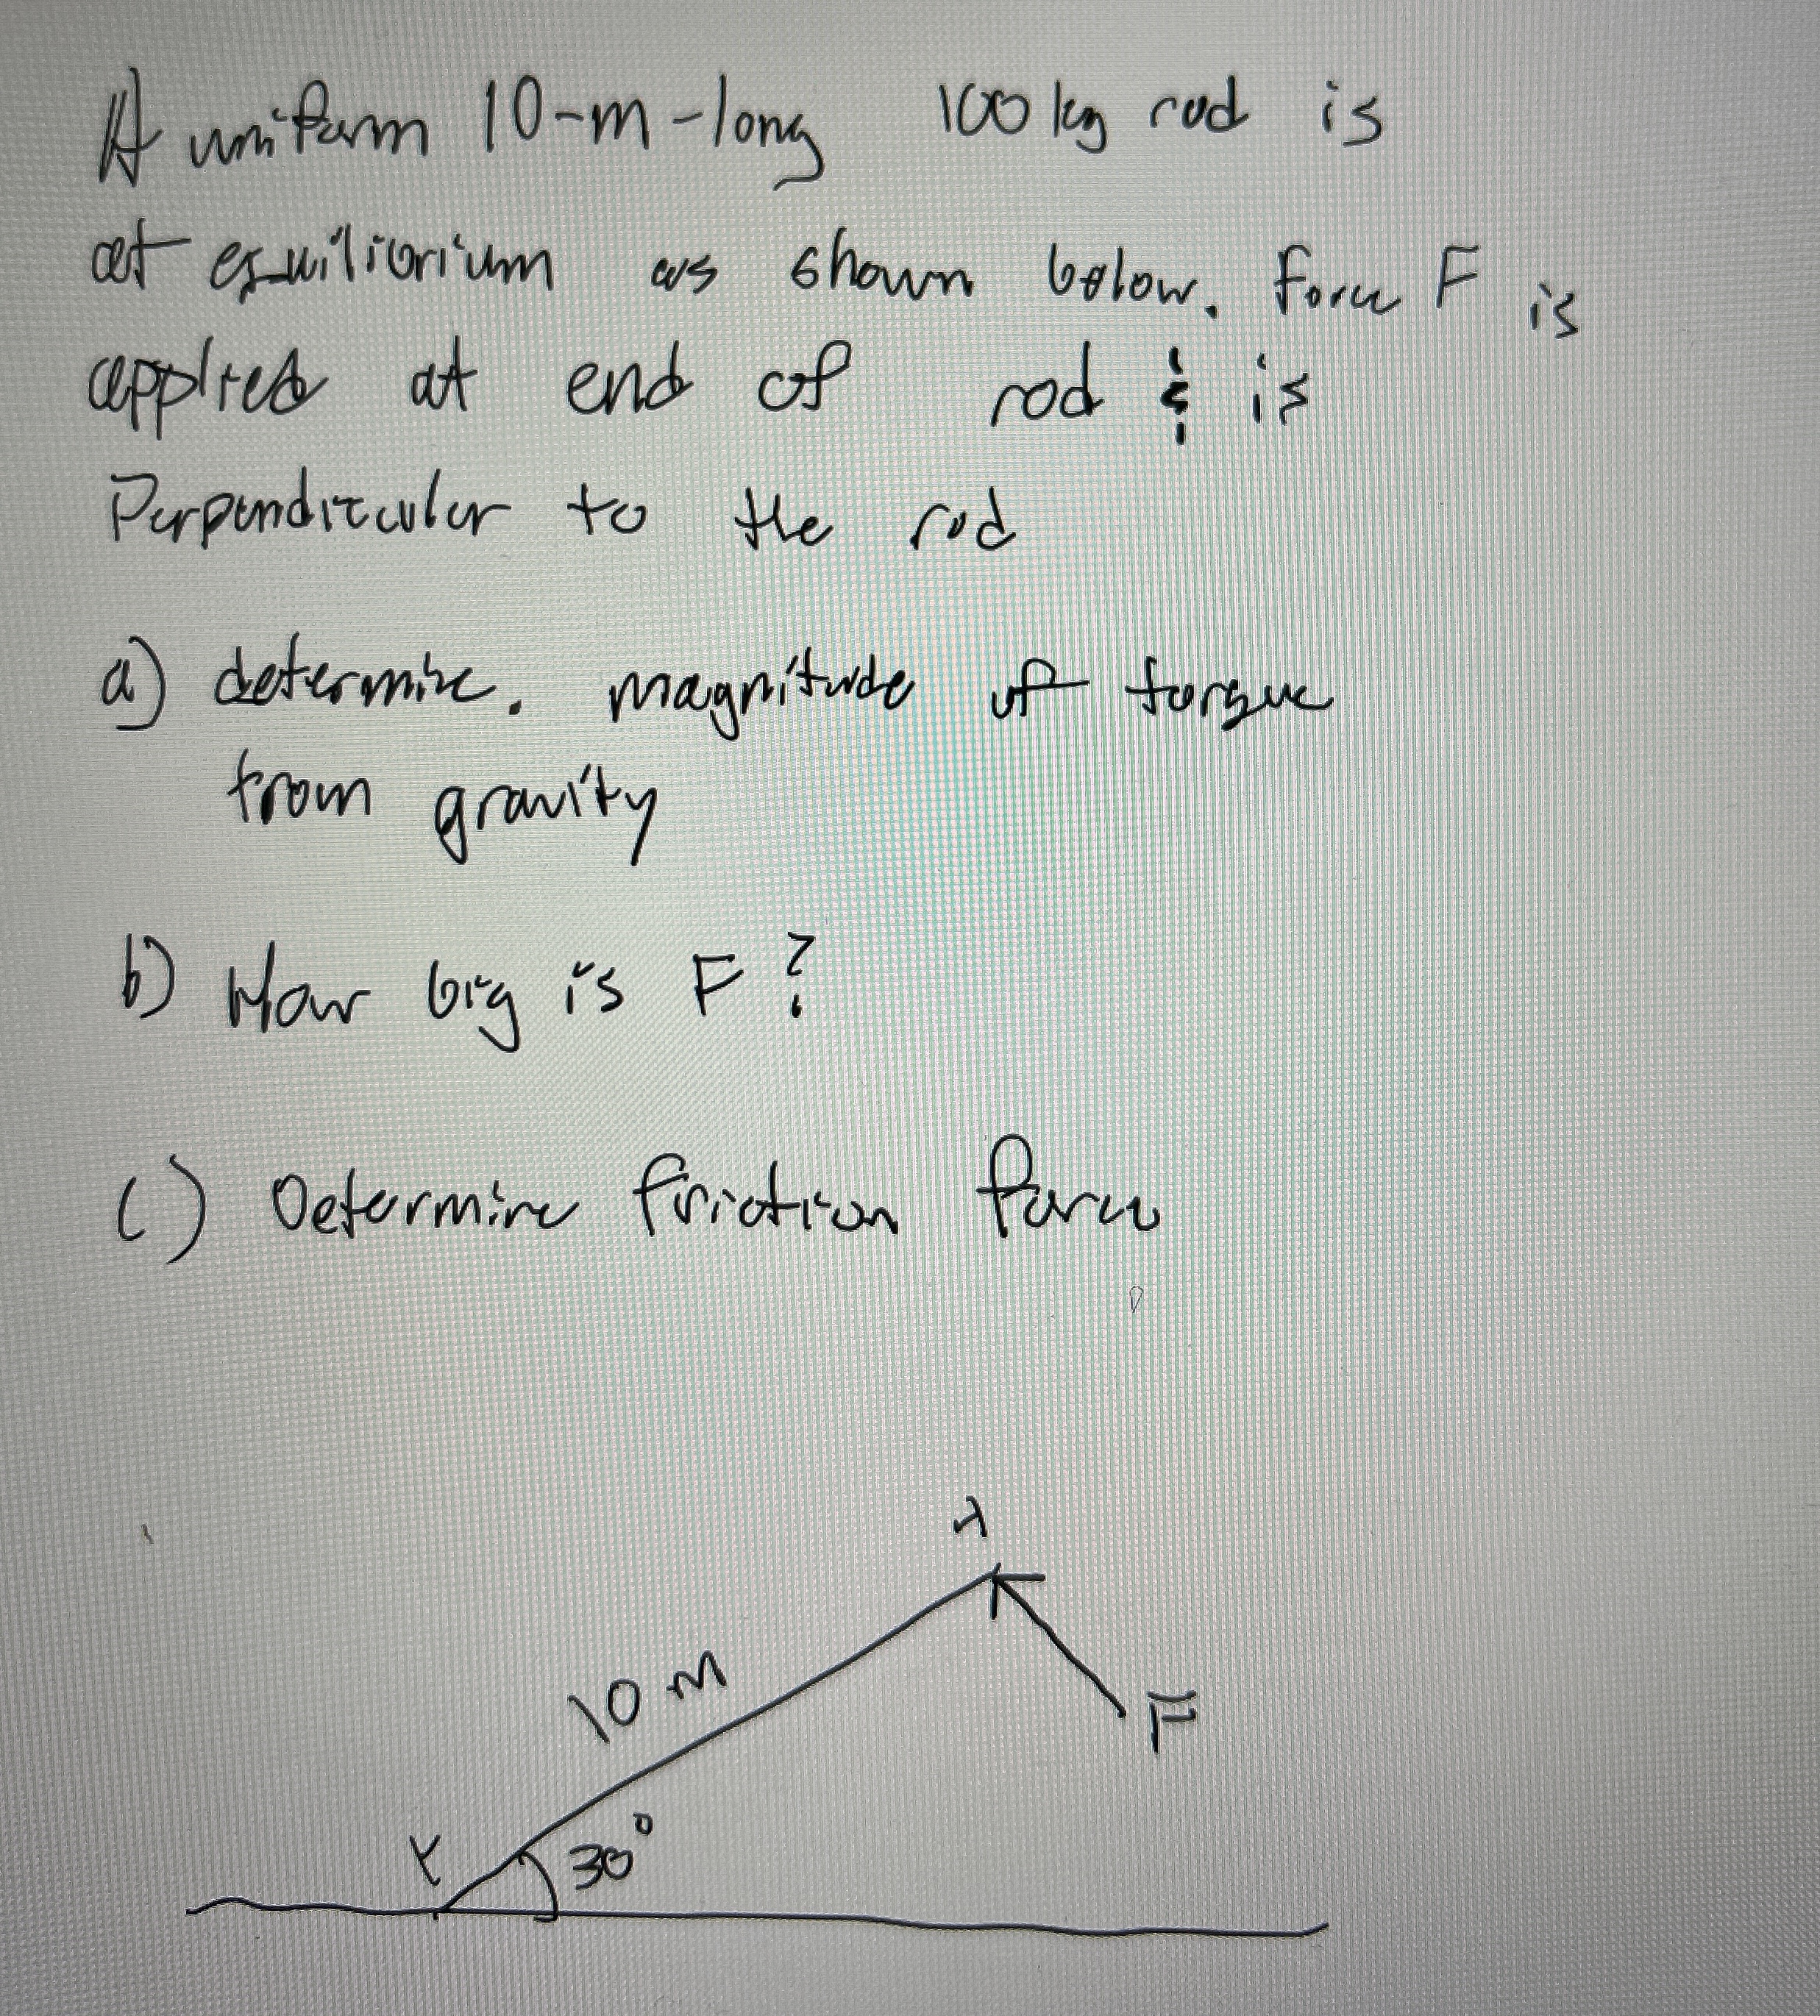 A uniform 10-m-long 100 kg rod is
at equilibrium as shown below. Force F is
applied at end of rod & is
Perpendicular to the rod
a) determine. magnitude of torque
from gravity
b) How big is F?
c) Determine friction force
10 m
F
30°